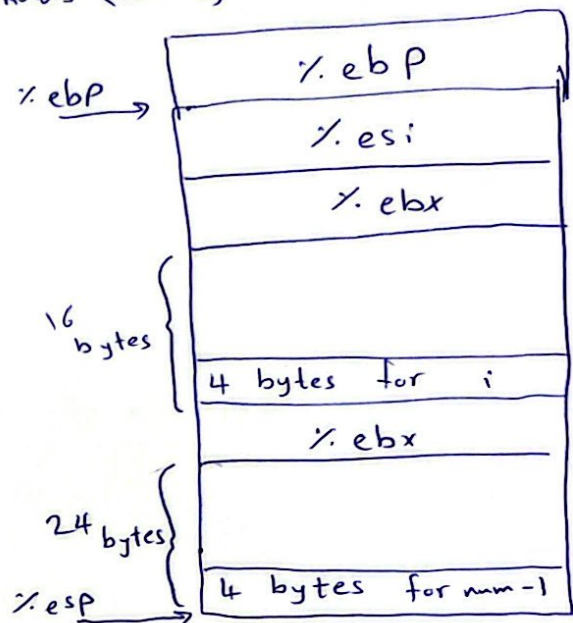 % ebp
% ebp
% esi
% ebx
16
bytes
4 bytes for i
% ebx
24 bytes
4 bytes for num-1
% esp